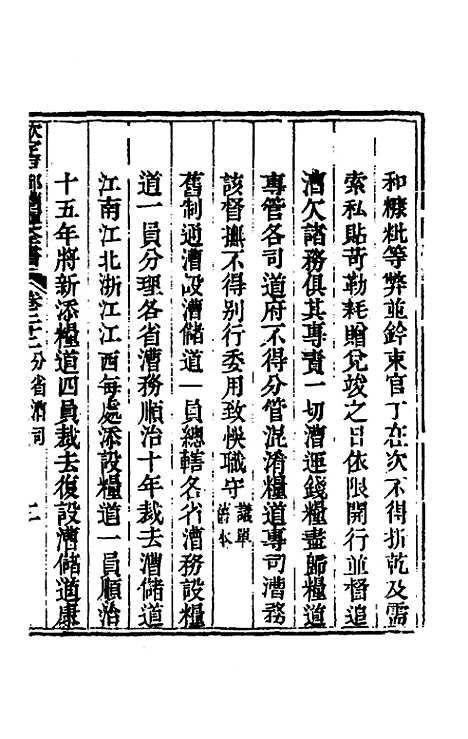 和糠秕等弊並鈐束官丁在次不得折乾及需
索私貼苛勒耗贈兌竣之日依限開行並督追
漕欠諸務俱其專責一切漕運錢糧盡歸糧道
專管各司道府不得分管混淆糧道專司漕務
該督撫不得別行委用致悞職守 議單舊本
舊制通漕設漕儲道一員總轄各省漕務設糧
道一員分理各省漕務順治十年裁去漕儲道
江南江北浙江江西每處添設糧道一員順治
十五年將新添糧道四員裁去復設漕儲道康
欽定戶部漕運全書 卷二十二 分省漕司 二